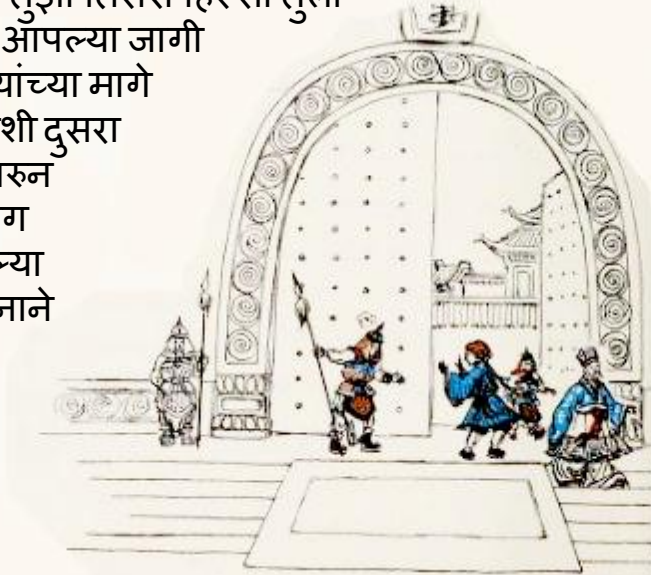 तुला
आपल्या जागी
यांच्या मागे
शी दुसरा
रुन
ग
ऱ्या
नाने